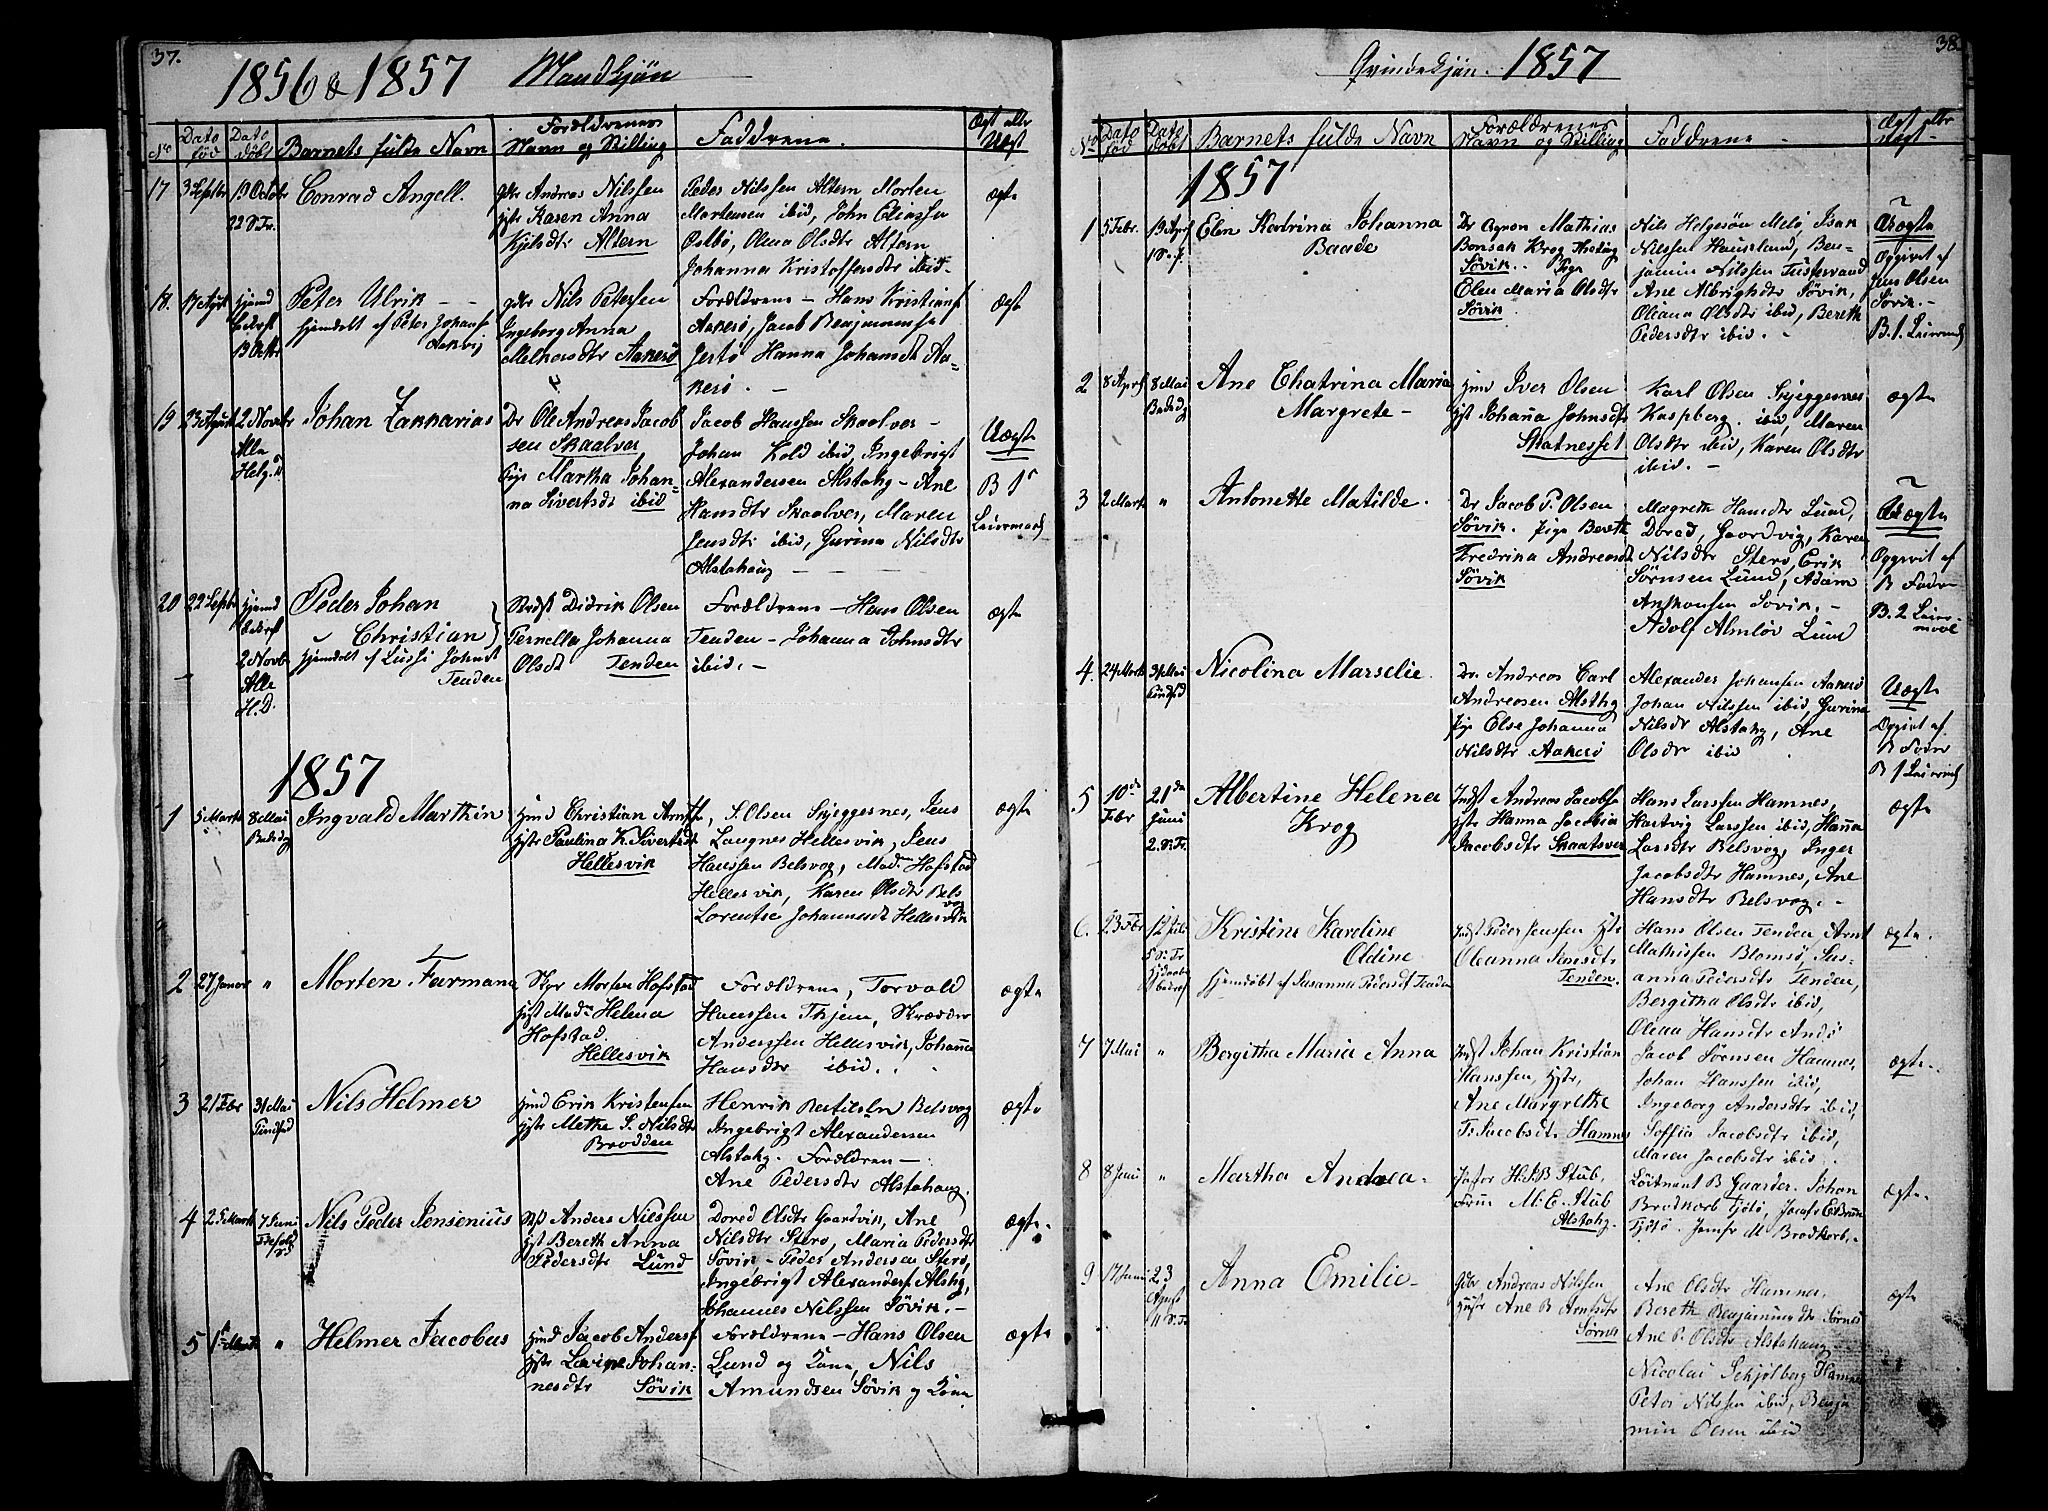 37.
1856 & 1857 Mandkjøn
No
Dato
född
Dato
döbt
Barnets fulde Navn
Forældrenes
Navn og Stilling
Faddrene.
Ægt eller
Uægt
17 3 Septbr 19 Octbr
22 S. Tr.
Conrad Angell.
gdbr Andreas Nilssen
hstr Karen Anna
Kjelsdtr Altern
Peder Nilssen Altern Morten
Mortensen ibid, John Eliassen
Ostbö, Olena Olsdtr Altern
Johanna Kristoffersdtr ibid.
ægte
18. 17 Agust hjemd
bekrft
19 Octbr
Peter Ulrik - -
hjemdöbt af Peter Johans
Aakvig
gdbr Nils Petersen
Ingeborg Anna
Melkersdtr Aakerö
Forældrene - Hans Kristians
Aakerö, Jacob Benjaminsen
Jertö Hanna Johansdt Aa-
kerö. -
ægt
19 23 August 2 Novbr
Alle
Helg. D
Johan Zakkarias
Dr Ole Andreas Jacob
sen Skaalver
Pige Martha Johan-
na Sivertsdr ibid
Jacob Hanssen Skaalver -
Johan Kold ibid, Ingebrigt
Alexandersen Alstahg - Ane
Hansdtr Skaalver, Maren
Jensdtr ibid, Gurina Nilsdtr
Alstahaug -
Uægte
B 1s
Leiermaal
20 22 Septbr hjemd
bekrft
2 Novbr
Alle
H. D.
Peder Johan
Christian
hjemdöbt af Lussi Johnsdt
Tenden
Indst Didrik Olsen
Pernella Johanna
Olsdt Tenden
Forældrene - Hans Olsen
Tenden - Johanna Johnsdtr
ibid. -
ægte
1857
1 5 Marts 8 Mai
Bededag
Ingvald Marthin
hmd Christian Arntss
hstr Paulina K. Sivertsdt
Hellesvik
S. Olsen Skjeggesnes, Jens
Langnes Hellesvik, Jens
Hanssen Belsvog, Mad. Hofstad
Hellesvik, Karen Olsdtr Bels
vog
Lorentse Johannesdt Hellesvik
ægte
2 27 Januar "
Morten Furmann
Skpr Morten Hofstad
hst Mad. Helena
Hofstad.
Hellesvik
Forældrene, Torvald
Hanssen Thjem, Skrædder
Anderssen Hellesvik, Johanna
Hansdtr ibid.
ægte
3 21 Febr 31 Mai
Pindsed
Nils Helmer
hmd Erik Kristensen
hstr Methe S. Nilsdtr
Brodden
Henrik Bertilsen Belsvog
Ingebrigt Alexandersen
Alstahg. Forældren -
Ane Pedersdtr Alstahaug.
ægte
4 25 Marts 7 Juni
Trefold
Nils Peder Jensenius
Indst Anders Nilssen
hst Bereth Anna
Pedersdtr Lund
Dored Olsdtr Gaardvik, Ane
Nilsdtr Sterö, Maria Pedersdtr
Sövik, - Peder Andersen Sterö,
Ingebrigt Alexanders Alsthg,
Johannes Nilssen Sövik. -
ægte.
5 1ste Marts "
Helmer Jacobus
hmd Jacob Anders
hstr Lavine Johan-
nesdtr Sövik
Forældrene - Hans Olsen
Lund og Kona, Nils
Amundsen Sövik og Kona
ægte
38.
Qvindekjön. 1857
No
Dato
föd
Dato
döbt
Barnets fulde Navn
Forældrenes
Navn og Stilling
Faddrene -
Ægt eller
Uægt -
1857
1 5 Febr. 19 Apr
1 S. p.
Elen Katrina Johanna
Baade
Dr Agnon Mathias
Bonsak Krog Theding
Sövik. - Pige
Elen Maria Olsdtr
Sövik
Nils Helgesön Melö, Isak
Nilssen Hausland, Ben-
jamin Nilssen Tustervand
Ane Albrighdtr Sövik,
Oleana Olsdtr ibid, Bereth
Pedersdtr ibid. -
Uægte
Opgivet af
Jens Olsen
Sövik. -
B. 1. Leiermaal
2 8 April 8 Mai
Bededg
Ane Chatrina Maria
Margrete -
hmd Iver Olsen
hst Johanna Johnsdt
Skatnesset
Karl Olsen Skjeggesnes
Kaspberg. ibid, Maren
Olsdtr ibid, Karen Olsdtr
ibid. -
ægte
3 2 Marts "
Antonette Matilde.
Dr Jacob P. Olsen
Sövik. Pige Bereth
Fredrika Andreasdt
Sövik
Magrete Hansdtr Lund,
Dored, Gaardvig, Karen
Nilsdtr Sterö, Erik
Sörnsen Lund, Adam
Anthonsen Sövik. -
Adolf Almlöv Lund
Uægte
Opgevet af
B. Fader
B. 2 Leier
maal
4. 24 Marts 31 Mai
Pindsed
Nicolina Marselie.
Dr. Andreas Carl
Andreasen Alsthg
Pige Else Johanna
Nilsdtr Aakerö
Alexander Johansen Aakerö
Johan Nilssen ibid, Gurina
Nilsdr Alstahg, Ane
Olsdr ibid
Uægte
Opgivet af.
B Fader
B 1 Leierm
5 10de
Febr
21de
Juni
2. S. Tr.
Albertine Helena
Krog
Indst Andreas Jacobs
hstr Hanna Jacobia
Jacobsdtr Skaalver
Hans Larssen Hamnes,
Hartvig Larssen ibid, Hanna
Larsdtr Belsvog, Inger
Jacobsdtr Hamnes, Ane
Hansdtr Belsvog. -
ægte
6. 23 Febr 12 Juli
5 S. Tr
hjdaab
bekræft
Kristine Karoline
Oldine
hjemdöbt af Susanna Pedersdt Tenden
Indst Peder Jenssen hstr
Oleanna Jensdtr
Tenden.
Hans Olsen Tenden Arnt
Mathissen Blomsö, Sus-
anna Pedersdtr Tenden,
Bergitha Olsdtr ibid,
Olena Hansdtr Andö
ægte.
7 7 Mai "
Bergitha Maria Anna
Indst Johan Kristian
Hanssen, hstr,
Ane Margrethe
Fr. Jacobsdt. Hamnes
Jacob Sörensen Hamnes,
Johan Hanssen ibid,
Ingeborg Andersdtr ibid,
Soffia Jacobsdtr ibid,
Maren Jacobsdtr ibid.
ægte.
8 8 Juni "
Martha Andrea.
Pastor H. J. B Stub.
Frue M. E. Stub
Alstahg.
Löitnant B Gaarder. Johan
Brodkorb Tjötö, Jomfr E Brun
Tjötö. Jomfr M Brodkorb. -
ægte.
9 17 Juni 23
August
11 S. Tr
Anna Emilie -
gdbr Andreas Nilssen
husfr Ane B Arntsdtr
Sörnes
Ane Olsdtr Hamnes.
Bereth Benjaminsdtr Sörnes
Ane P. Olsdtr Alstahaug
Nicolai Schjölberg Hamnes
Peter Nilssen ibid, Benja
min Olsen ibid
ægte